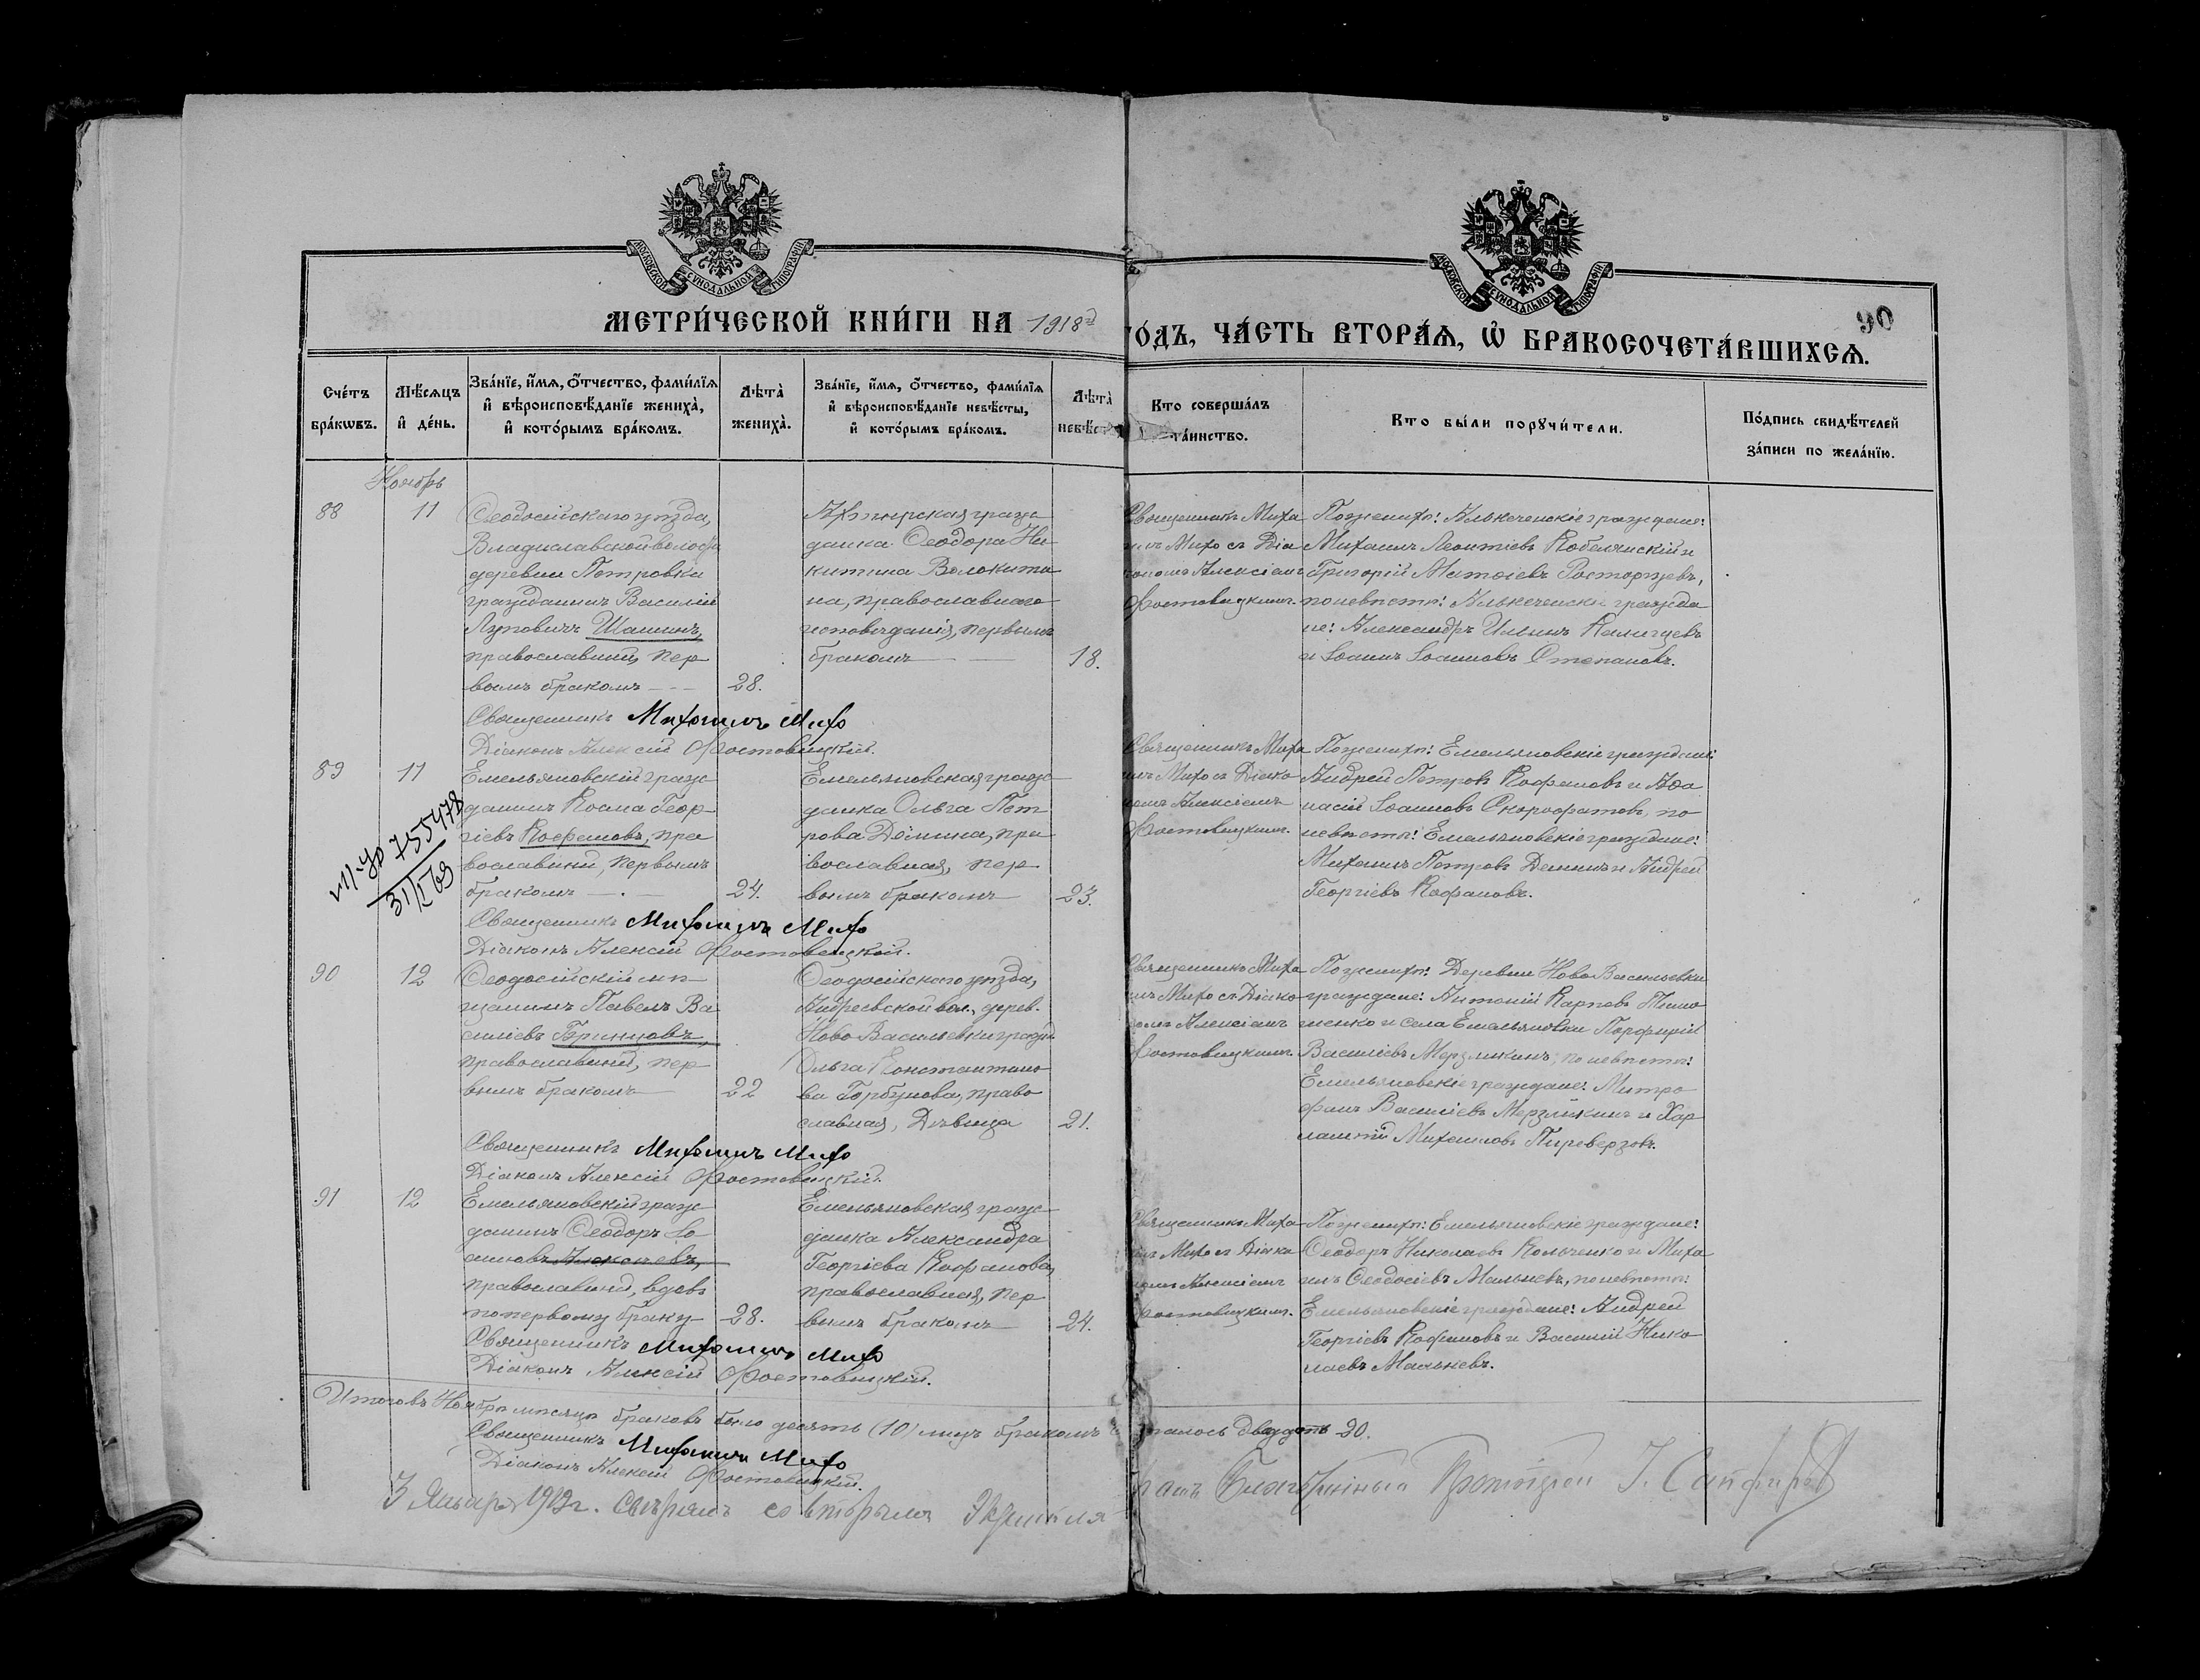 МОСКОВСКОЙ СѴНОДАЛЬНОЙ ТИПОГРАФІИ
МОСКОВСКОЙ СѴНОДАЛЬНОЙ ТИПОГРАФІИ
90
МЕТРИ́ЧЕСКОЙ КНИ́ГИ НА 1918й
ГО́ДЪ, ЧА́СТЬ ВТОРА́Ѧ, Ѽ БРАКОСОЧЕТА́ВШИХСѦ.
Сче́тъ бра́кѡвъ.
Мѣ́сѧцъ и҆ де́нь.
Зва́нїе, и҆́мѧ, о҆́тчество, фами́лїѧ и҆ вѣроисповѣ́данїе жениха̀, и҆ кото́рымъ бра́комъ.
Лѣта̀ жениха̀.
Зва́нїе, и҆́мѧ, о҆́тчество, фами́лїѧ и҆ вѣроисповѣ́данїе невѣ́сты, и҆ кото́рымъ бра́комъ.
Лѣта̀ невѣ́с
Кто соверша́лъ та́инство.
Кто бы́ли порꙋчи́тели.
По́дпись свидѣ́телей за́писи по жела́нїю.
Ноябрь
88
11
Ѳеодосійскаго уѣзда,
Владиславской волости
деревни Петровки
гражданинъ Василій
Луповичъ Шашинъ,
православный, пер
вымъ бракомъ
28.
граж
данка Ѳеодора Ни
китина Волокити
на, православнаго
исповѣданія, первымъ
бракомъ
18.
Священникъ Миха
илъ Михо съ Діа
кономъ Алексіемъ
Фостовицкимъ.
По женихѣ: граждане:
Михаилъ Леонтіевъ Кобелянскій и
Григорій Матѳіевъ Росторгуевъ,
по невѣстѣ: гражда
не: Александръ Ильинъ
и Іоаннъ Іоанновъ Степановъ.
Священникъ Михаилъ Михо
Діаконъ Алексій Фостовицкій.
89
11
Емельяновскій граж
данинъ Косма Геор
гіевъ Кофановъ, пра
вославный, первымъ
бракомъ
24.
Емельяновская граж
данка Ольга Пет
рова Дёмина, пра
вославная, пер
вымъ бракомъ
23.
755478
31/I 69
Священникъ Миха
илъ Михо съ Діако
номъ Алексіемъ
Фостовицкимъ.
По женихѣ: Емельяновскіе граждане:
Андрей Петровъ Кофановъ и Аѳа
насій Іоанновъ Скорофатовъ, по
невѣстѣ: Емельяновскіе граждане:
Михаилъ Петровъ Деминъ и Андрей
Георгіевъ Кофановъ.
Священникъ Михаилъ Михо
Діаконъ Алексій Фостовицкій.
90
12
Ѳеодосійскій мѣ
щанинъ Павелъ Ва
силіевъ Бринцовъ,
православный, пер
вымъ бракомъ
22
Ѳеодосійскаго уѣзда,
Андреевской вол., дерев.
Ново Васильевки гражд.
Ольга Константино
ва Горбунова, право
славная, Дѣвица
21.
Священникъ Миха
илъ Михо съ Діако
номъ Алексіемъ
Фостовицкимъ.
По женихѣ: Деревни Ново Васильевки
граждане: Антоній Карповъ Тимо
шенко и села Емельяновки Порфирій
Василіевъ Мерзликинъ; по невѣстѣ:
Емельяновскіе граждане: Митро
фанъ Василіевъ Мерзликинъ и Хар
лампій Михаиловъ Пиреверзовъ.
Священникъ Михаилъ Михо
Діаконъ Алексій Фостовицкій.
91
12
Емельяновскій граж
данинъ Ѳеодоръ Іо
анновъ
православный, вдовъ
по первому браку
28.
Емельяновская граж
данка Александра
Георгіева Кофанова,
православная, пер
вымъ бракомъ
24.
Священникъ Миха
илъ Михо съ Діако
номъ Алексіемъ
Фостовицкимъ.
По женихѣ: Емельяновскіе граждане:
Ѳеодоръ Николаевъ Кольченко и Миха
илъ Ѳеодосіевъ Мальневъ, по невѣстѣ:
Емельяновскіе граждане: Андрей
Георгіевъ Кофановъ и Василій Нико
лаевъ Мальневъ.
Священникъ Михаилъ Михо
Діаконъ Алексій Фостовицкій.
Итого въ Ноябрѣ мѣсяцѣ браковъ было десять (10) лицъ бракомъ
талось двадцать 20.
Священникъ Михаилъ Михо
Діаконъ Алексій Фостовицкій.
3 Января 1919 г. свѣрялъ со вторымъ экземпля
ромъ Благочинный Протоіерей І. Сапфировъ